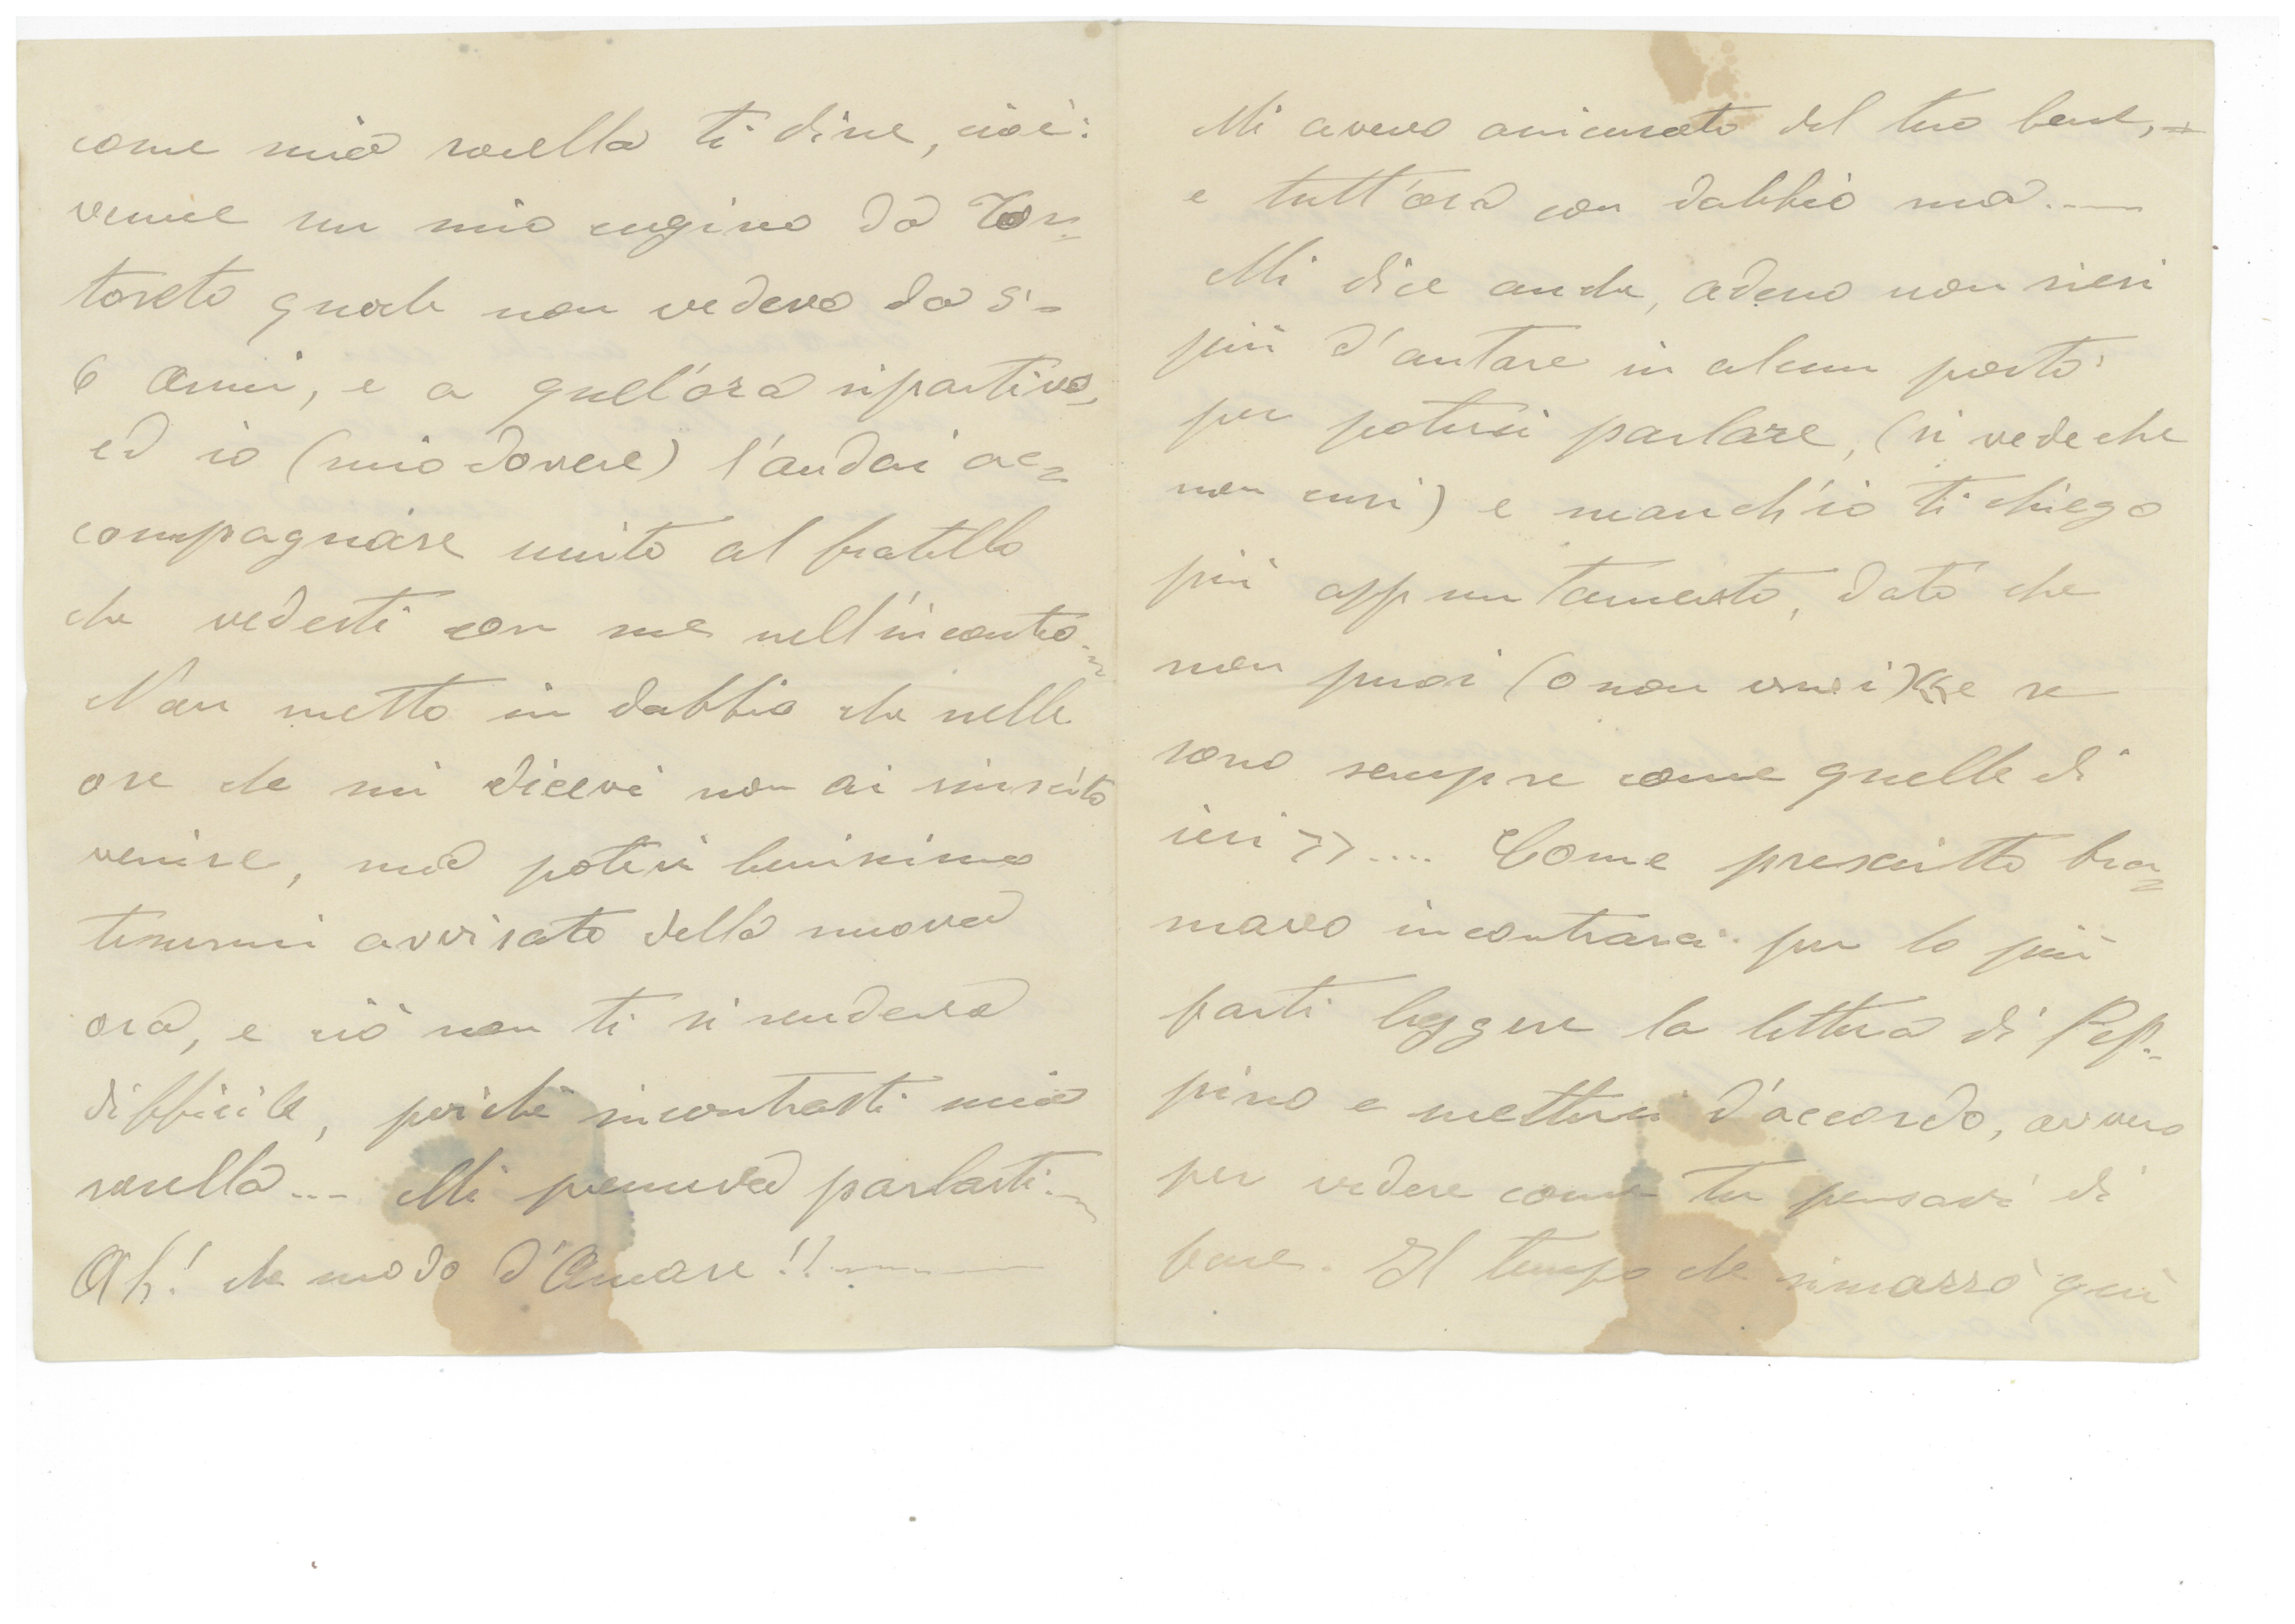 come mia sorella ti disse, cioè:
venne un mio cugino da Tor=
toreto quale non vedevo da 5-
6 Anni, e a quell'ora ripartiva,
ed io (mio dovere) l'andai ac=
compagnare unito al fratello
che vedesti con me nell'incontro.
Non metto in dabbio che nelle
ore che mi dicevi non ai riuscito
venire, ma potevi benissimo
tenermi avvisato della nuova
ora, e ciò non ti si rendeva
difficile, perchè incontrasti mia
sorella... Mi premeva parlarti.
Ah! che modo d'Amare!!
Mi avevo assicurato del tuo bene,
e tutt'ora con dabbio ma.
Mi dice anche, adesso non riesi
più d'antare in alcun posto
per poterci parlare, (si vede che
non curi) e manch'io ti chiego
più appuntamento, dato che
non puoi (o non vuoi) e se
sono sempre come quelle di
ieri >>.... Come prescritto bra=
mavo incontrarci per lo più
farti leggere la lettera di Pep-
pino e metterci d'accordo, ovvero
per vedere come tu pensavi di
fare. Il tempo che rimarrò quì